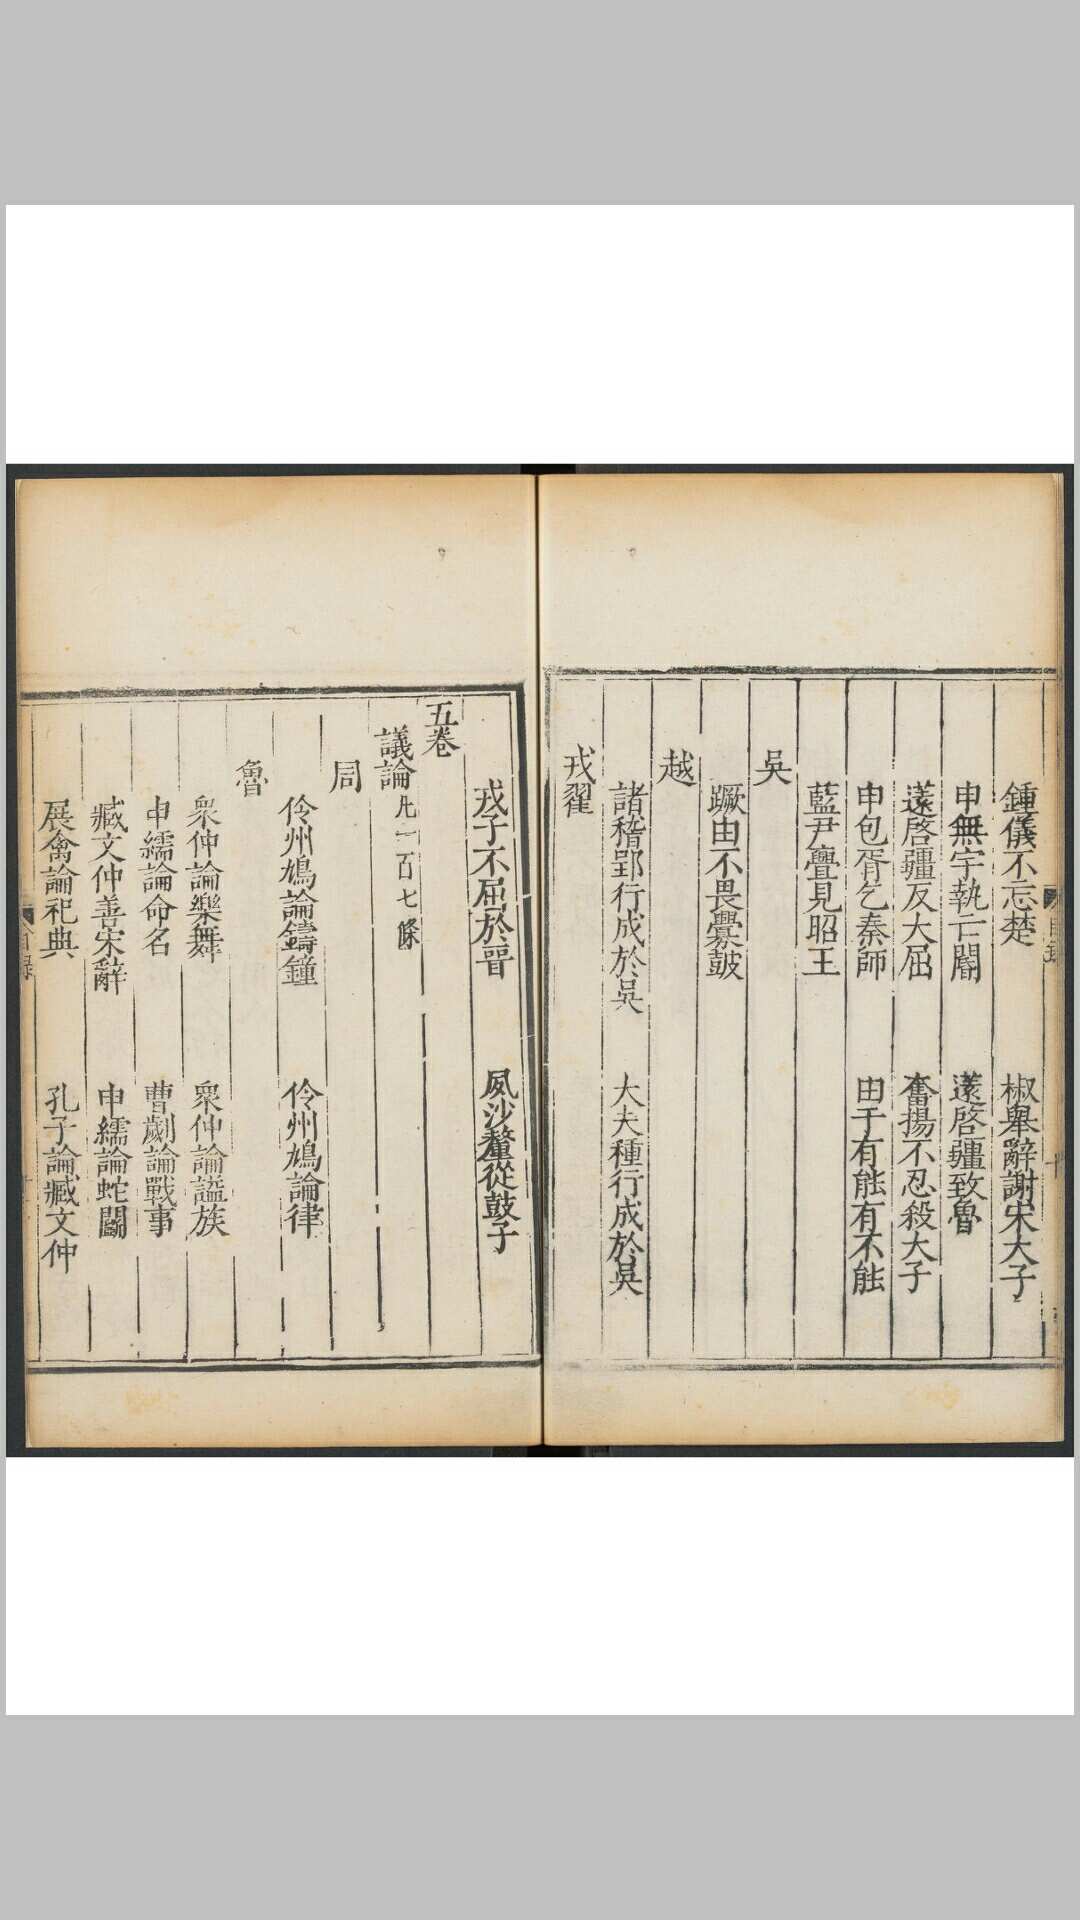 鍾儀不忘楚　椒舉辭謝宋大子
申無宇執亡閽　薳啓疆致魯
薳啓疆反大屈　奮揚不忍殺大子
申包胥乞秦師　由于有能有不能
藍尹亹見昭王
吳
蹶由不畏釁鼓
越
諸稽郢行成於吳　大夫種行成於吳
戎翟
戎子不屈於晉　夙沙釐從鼓子
五卷
議論凡一百七條
周
伶州鳩論鑄鐘　伶州鳩論律
魯
衆仲論樂舞　衆仲論謚族
申繻論命名　曹劌論戰事
臧文仲善宋辭　申繻論蛇鬭
展禽論祀典　孔子論臧文仲
目錄